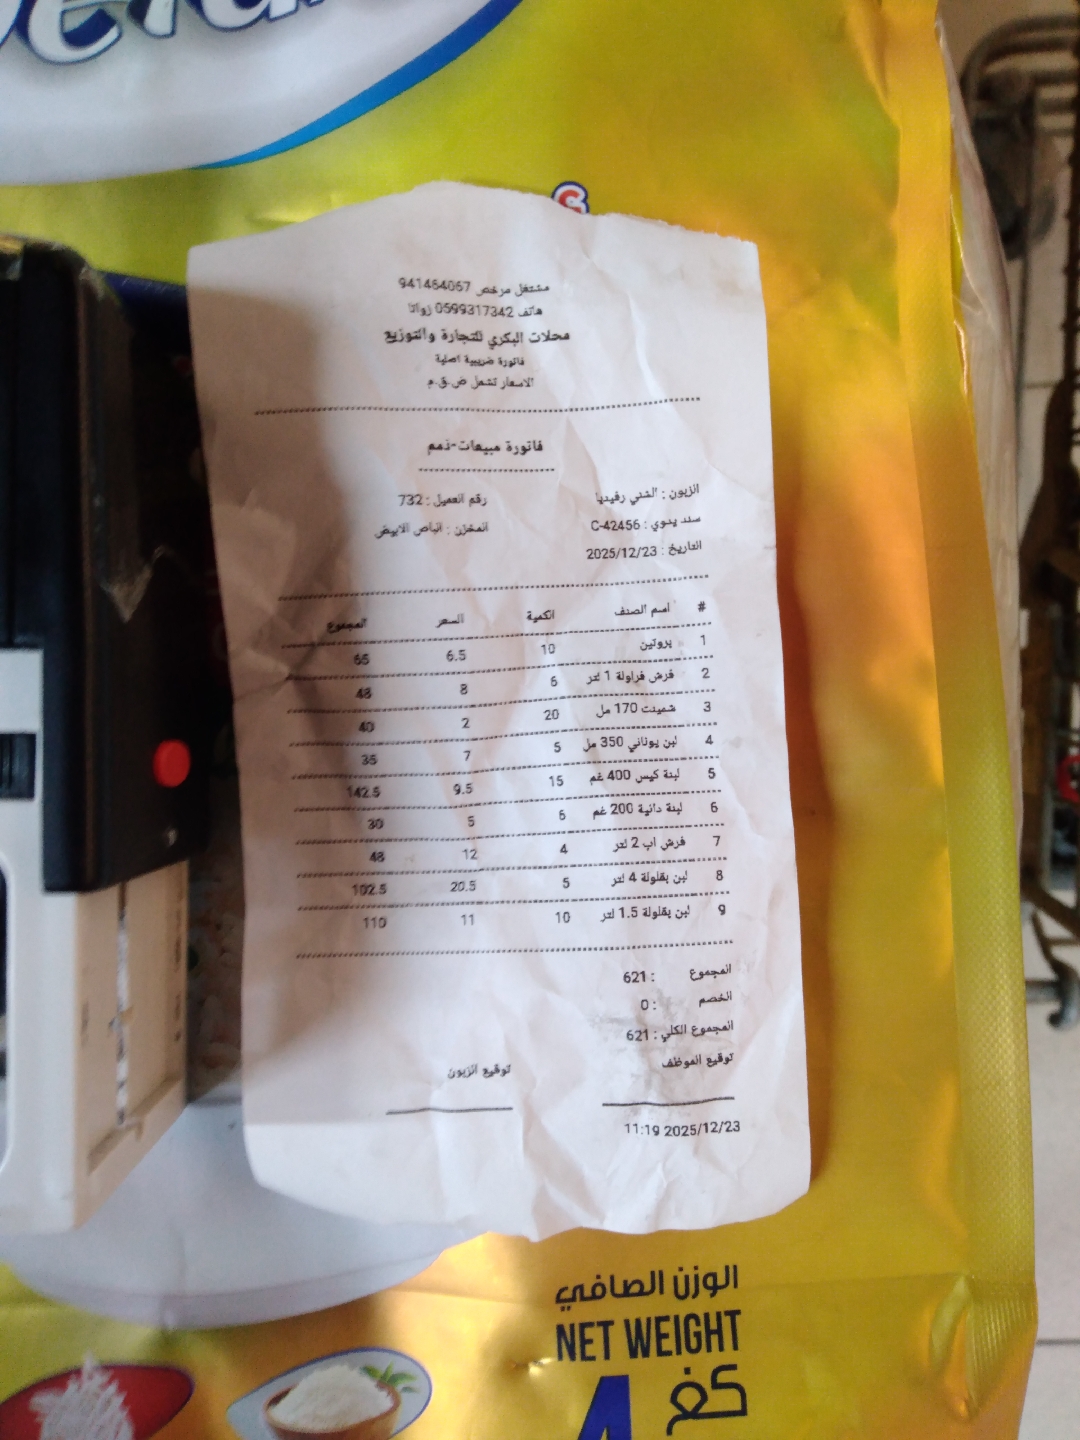 مشتغل مرخص 941464067
هاتف 0599317342 زواتا
محلات البكري للتجارة والتوزيع
فاتورة ضريبية اصلية
الاسعار تشمل ض.ق.م
فاتورة مبيعات-ذمم
الزبون : الشني رفيديا رقم العميل : 732
سند يدوي : C-42456 المخزن : الباص الابيض
التاريخ : 2025/12/23
# اسم الصنف الكمية السعر المجموع
1 بروتين 10 6.5 65
2 فرش فراولة 1 لتر 6 8 48
3 شمينت 170 مل 20 2 40
4 لبن يوناني 350 مل 5 7 35
5 لبنة كيس 400 غم 15 9.5 142.5
6 لبنة دانية 200 غم 6 5 30
7 فرش اب 2 لتر 4 12 48
8 لبن بقلولة 4 لتر 5 20.5 102.5
9 لبن بقلولة 1.5 لتر 10 11 110
المجموع : 621
الخصم : 0
المجموع الكلي : 621
توقيع الموظف توقيع الزبون
11:19 2025/12/23
الوزن الصافي
NET WEIGHT
4 كغ